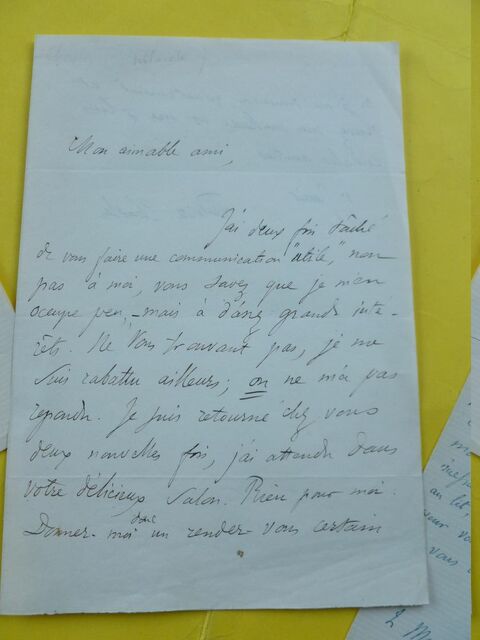 Mon aimable ami,
J'ai deux fois tâché
de vous faire une communication "utile," non
pas à moi, vous savez que je m'en
occupe peu, - mais à d'assez grands inté-
rêts. Ne vous trouvant pas, je me
suis rabattu ailleurs; on ne m'a pas
répondu. Je suis retourné chez vous
deux nouvelles fois, j'ai attendu dans
votre délicieux salon. Rien pour moi.
Donnez-moi donc un rendez-vous certain